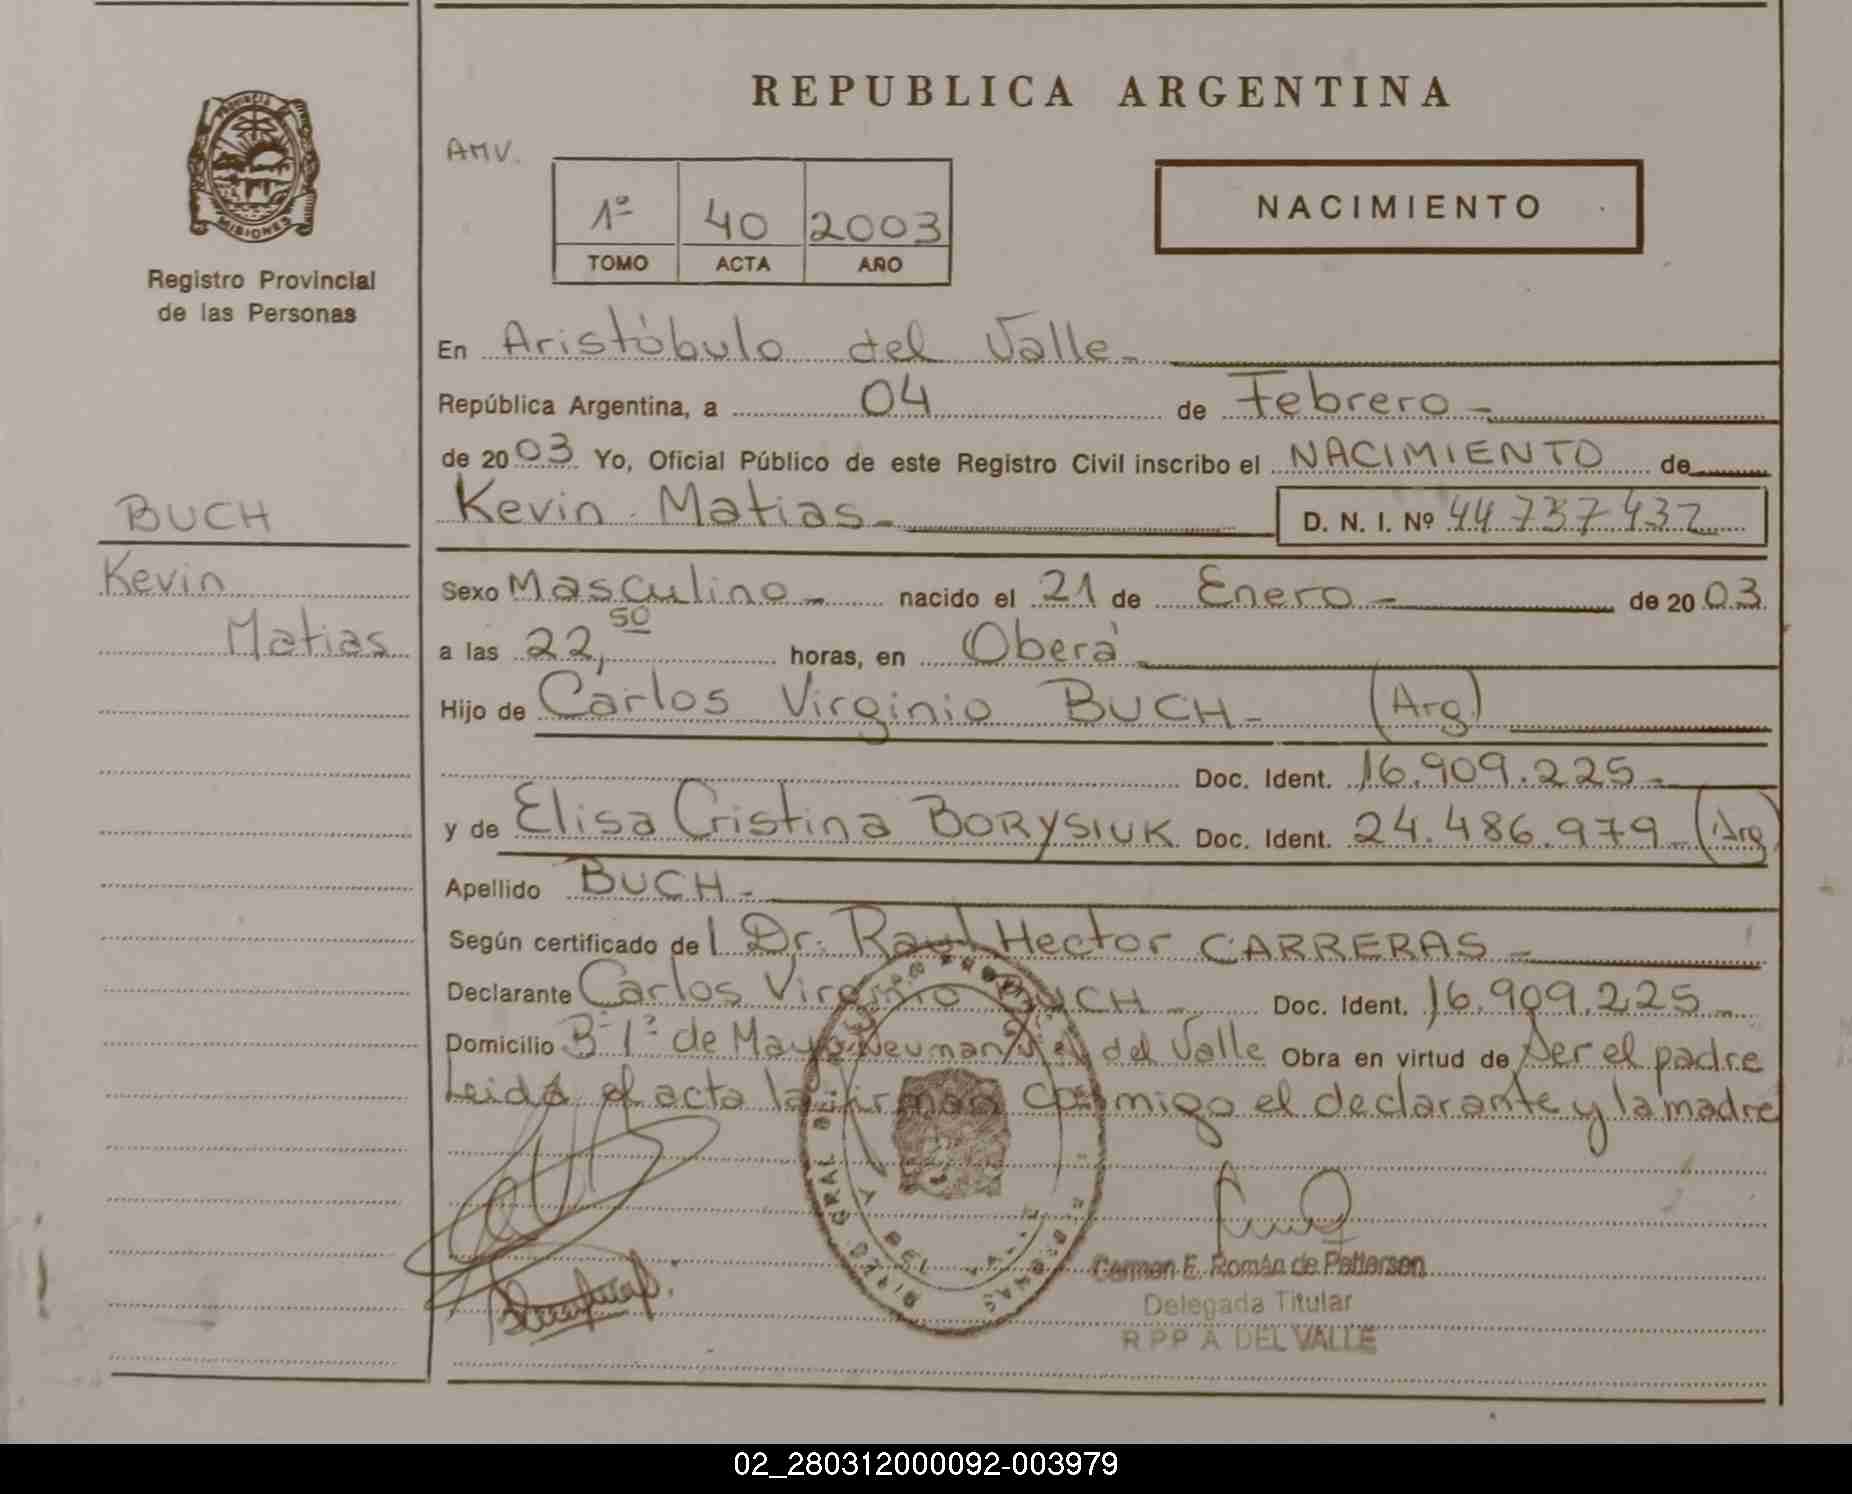 REPUBLICA ARGENTINA
PROVINCIA
MISIONES
Registro Provincial
de las Personas
AMV.
1º 40 2003
TOMO ACTA AÑO
NACIMIENTO
En Aristóbulo del Valle-
República Argentina, a 04 de Febrero-
de 2003 Yo, Oficial Público de este Registro Civil inscribo el NACIMIENTO de
BUCH
Kevin Matias-
D. N. I. Nº 44 737 432
Kevin
Matias
Sexo Masculino- nacido el 21 de Enero- de 2003.
a las 22,50 horas, en Oberá
Hijo de Carlos Virginio BUCH- (Arg)
Doc. Ident. 16.909.225-
y de Elisa Cristina BORYSIUK Doc. Ident. 24.486.979- (Arg)
Apellido BUCH-
Según certificado del Dr. Raul Hector CARRERAS-
Declarante Carlos Virginio BUCH- Doc. Ident. 16.909.225-
Domicilio Bº 1º de Mayo del Valle Obra en virtud de Ser el padre
Leida el acta la firman conmigo el declarante y la madre
Carmen E. Román de Pettersen
Delegada Titular
R P P A DEL VALLE
02_280312000092-003979